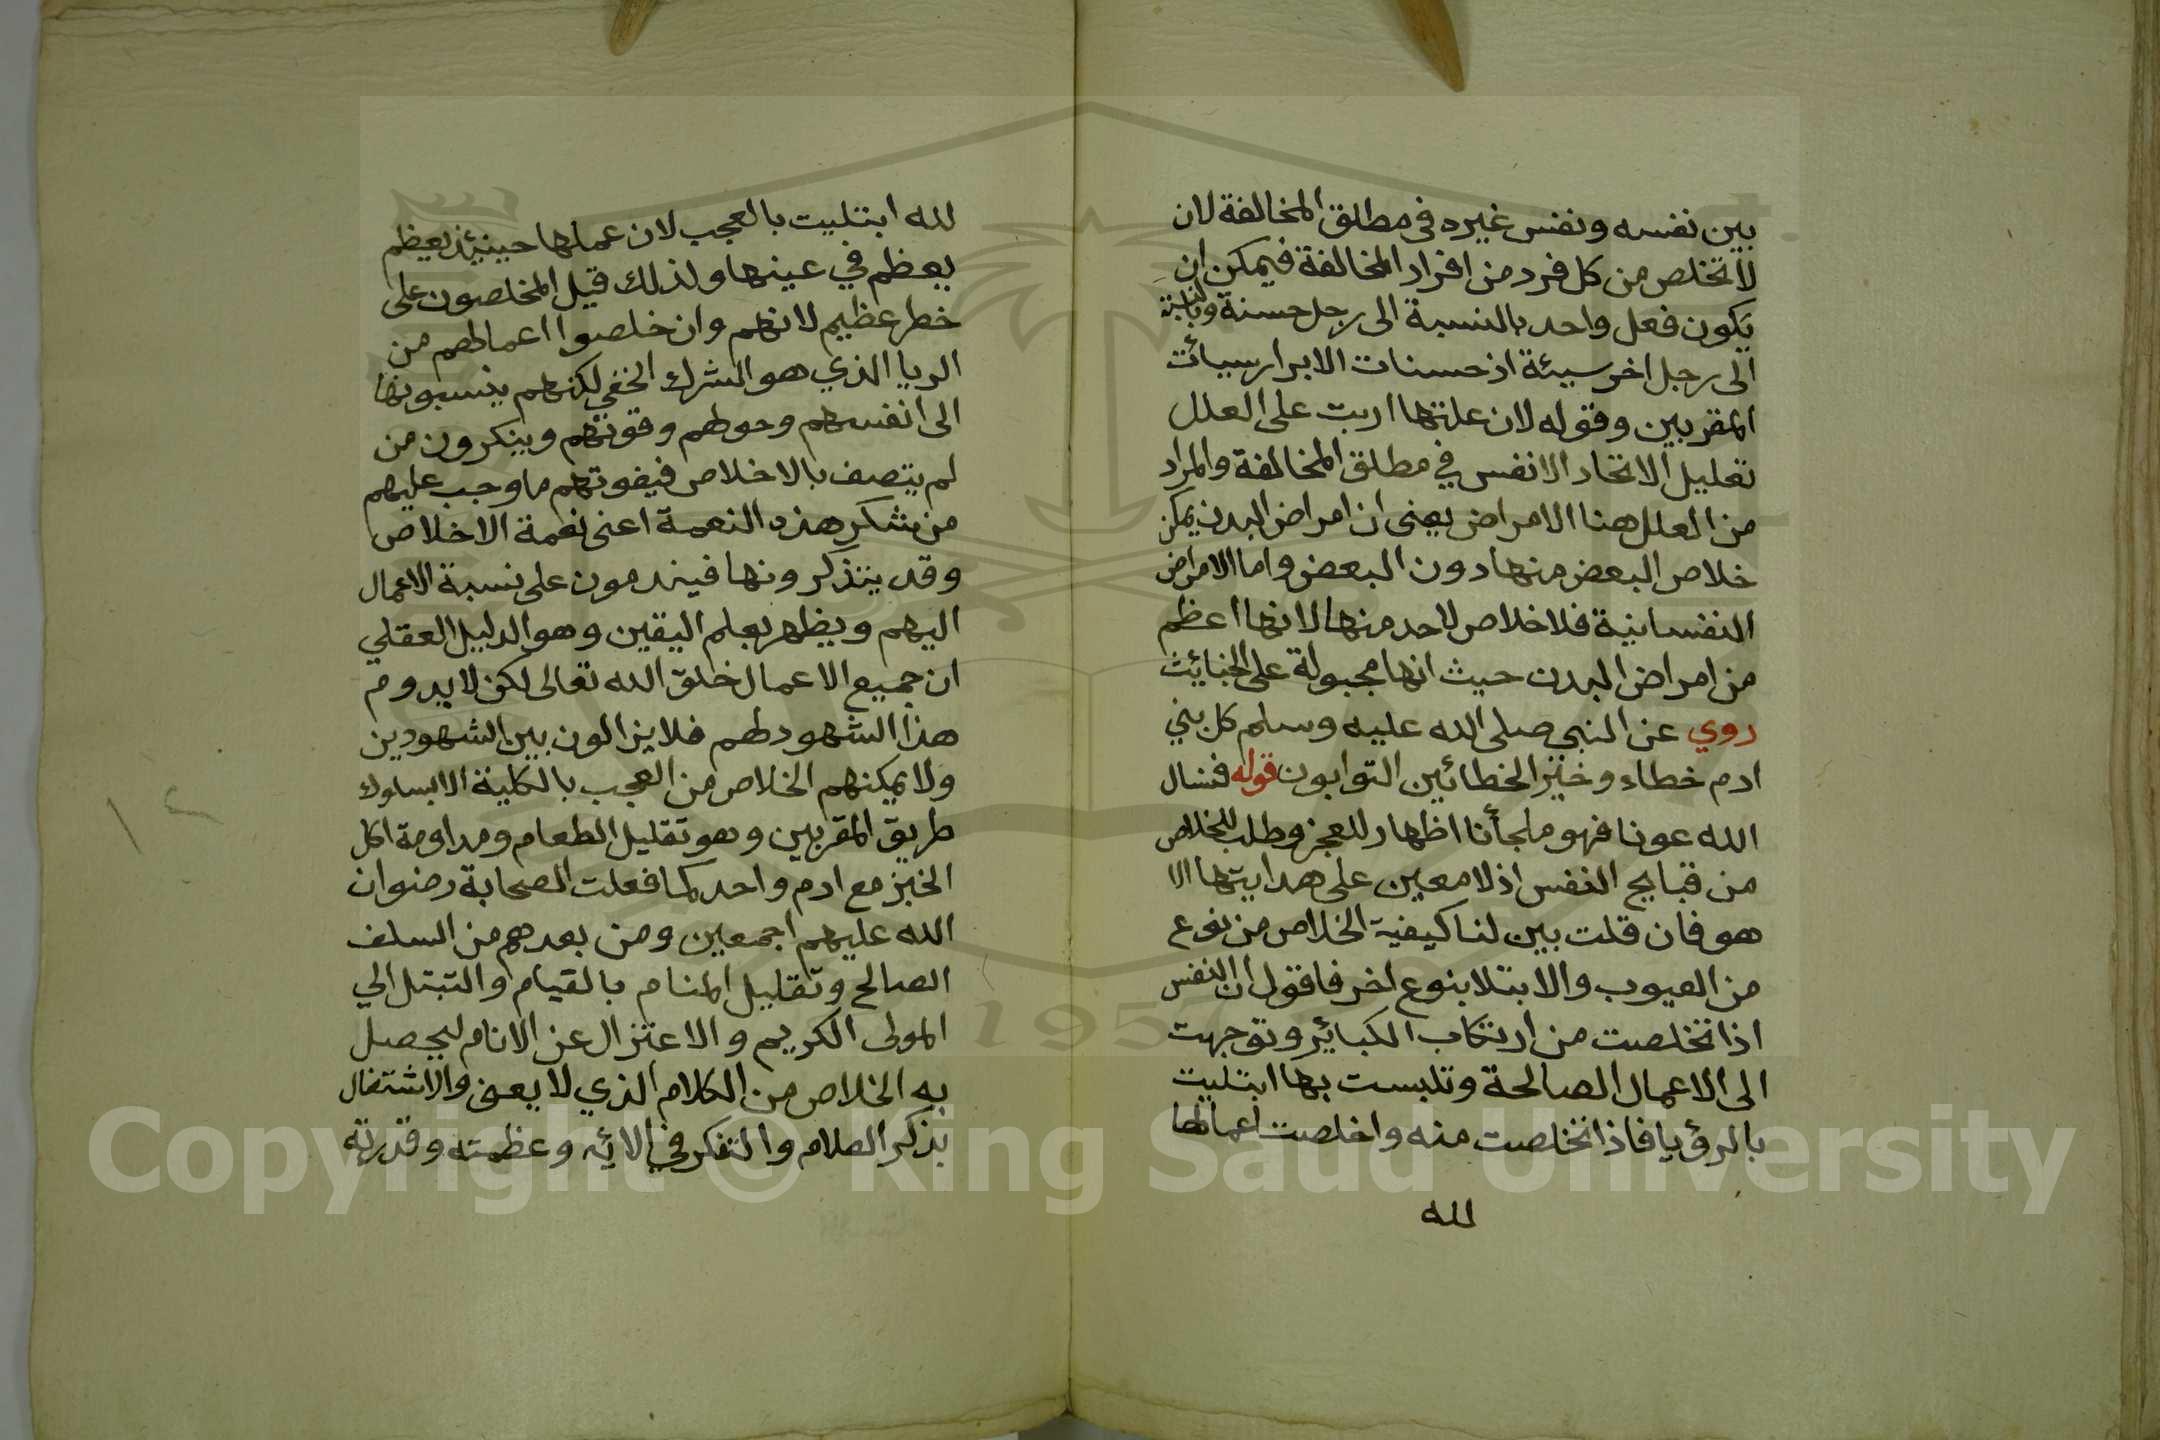 بين نفسه ونفس غيره في مطلق المخالفة لان
لا تخلص من كل فرد من افراد المخالفة فيمكن ان
يكون فعل واحد بالنسبة الى رجل حسنة وبالنسبة
الى رجل اخر سيئة اذ حسنات الابرار سيأت
المقربين وقوله لان علتها اربت على العلل
تعليل الاتحاد الانفس في مطلق المخالفة والمراد
من العلل هنا الامراض يعنى ان امراض البدن يمكن
خلاص البعض منها دون البعض واما الامراض
النفسانية فلا خلاص لاحد منها لانها اعظم
من امراض البدن حيث انها مجبولة على الخبائث
روي عن النبى صلى الله عليه وسلم كل بني
ادم خطاء وخير الخطائين التوابون قوله فنسال
الله عونا فهو ملجأنا اظهار للعجز وطلب للخلاص
من قبايح النفس اذ لا معين على هدايتها الا
هو فان قلت بين لنا كيفية الخلاص من نوع
من العيوب والابتلا بنوع اخر فاقول ان النفس
اذا تخلصت من ارتكاب الكبائر وتوجهت
الى الاعمال الصالحة وتلبست بها ابتليت
بالرؤيا فاذا تخلصت منه واخلصت اعمالها
لله
لله ابتليت بالعجب لان عملها حينئذ يعظم
يعظم في عينها ولذلك قيل المخلصون على
خطر عظيم لانهم وان خلصوا اعمالهم من
الريا الذي هو الشرك الخفي لكنهم ينسبونها
الى انفسهم وحولهم وقوتهم وينكرون من
لم يتصف بالاخلاص فيفوتهم ما وجب عليهم
من شكر هذه النعمة اعنى نعمة الاخلاص
وقد يتذكرونها فيندمون على نسبة الاعمال
اليهم ويظهر بعلم اليقين وهو الدليل العقلي
ان جميع الاعمال خلق الله تعالى لكن لا يدوم
هذا الشهود لهم فلا يزالون بين الشهودين
ولا يمكنهم الخلاص من العجب بالكلية الا بسلوك
طريق المقربين وهو تقليل الطعام ومداومة اكل
الخبز مع ادم واحد كما فعلت الصحابة رضوان
الله عليهم اجمعين ومن بعدهم من السلف
الصالح وتقليل المنام بالقيام والتبتل الي
المولى الكريم والاعتزال عن الانام ليحصل
به الخلاص من الكلام الذي لا يعنى والاشتغال
بذكر العلام والتفكر في الائه وعظمته وقدرته
1957
Copyright © King Saud University